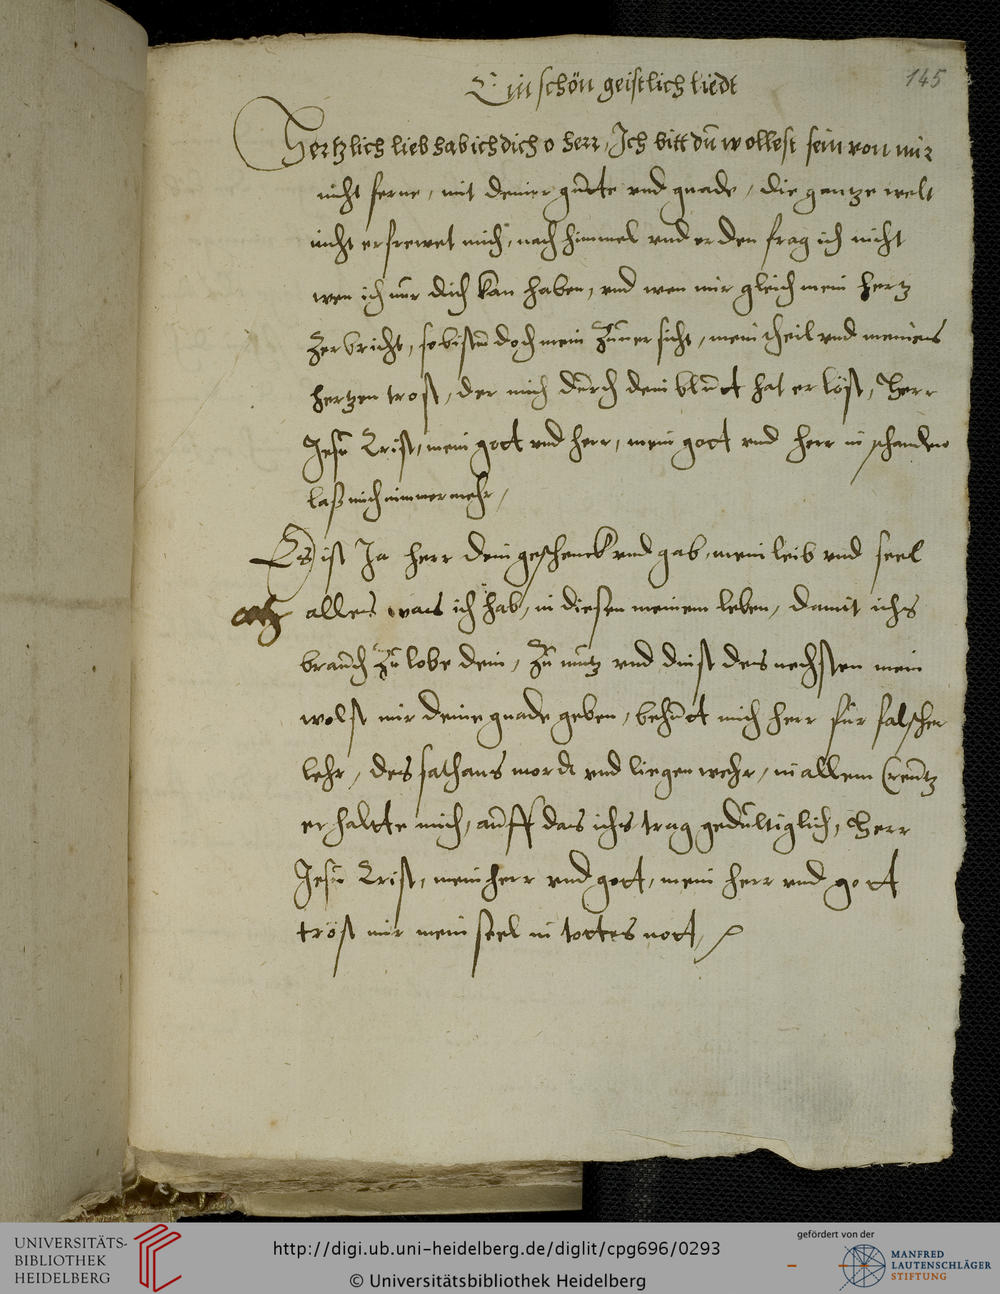 145
Ein schön geistlich liedt
Hertzlich lieb hab ich dich o herr, Ich bitt du wollest sein von mir
nicht ferne, mit deiner gütte vnd gnade, die gantze welt
nicht erfrewet mich, nach himmel vnd erden frag ich nicht
wen ich nur dich kan haben, vnd wen mir gleich mein hertz
zerbricht, so bistu doch mein zuuersicht, mein theil vnd meines
hertzen trost, der mich durch dein blutt hat erlöst, Herr
Jesu Crist, mein gott vnd herr, mein gott vnd herr in schanden
laß mich nimmermehr,
Es ist Ja herr dein geschenck vnd gab, mein leib vnd seel
alles was ich hab, in diesen meinem leben, damit ichs
brauch zu lobe dein, zu nutz vnd dinst des nechsten mein
wolst mir deine gnade geben, behutt mich herr für falscher
lehr, des sathans mordt vnd liegen wehr, in allem Creutz
erhaltte mich, auff das ichs trag gedultiglich, Herr
Jesu Crist, mein herr vnd gott, mein herr vnd gott
tröst mir mein seel in tottes nott,
UNIVERSITÄTS-
BIBLIOTHEK
HEIDELBERG
http://digi.ub.uni-heidelberg.de/diglit/cpg696/0293
© Universitätsbibliothek Heidelberg
gefördert von der
MANFRED
LAUTENSCHLÄGER
STIFTUNG